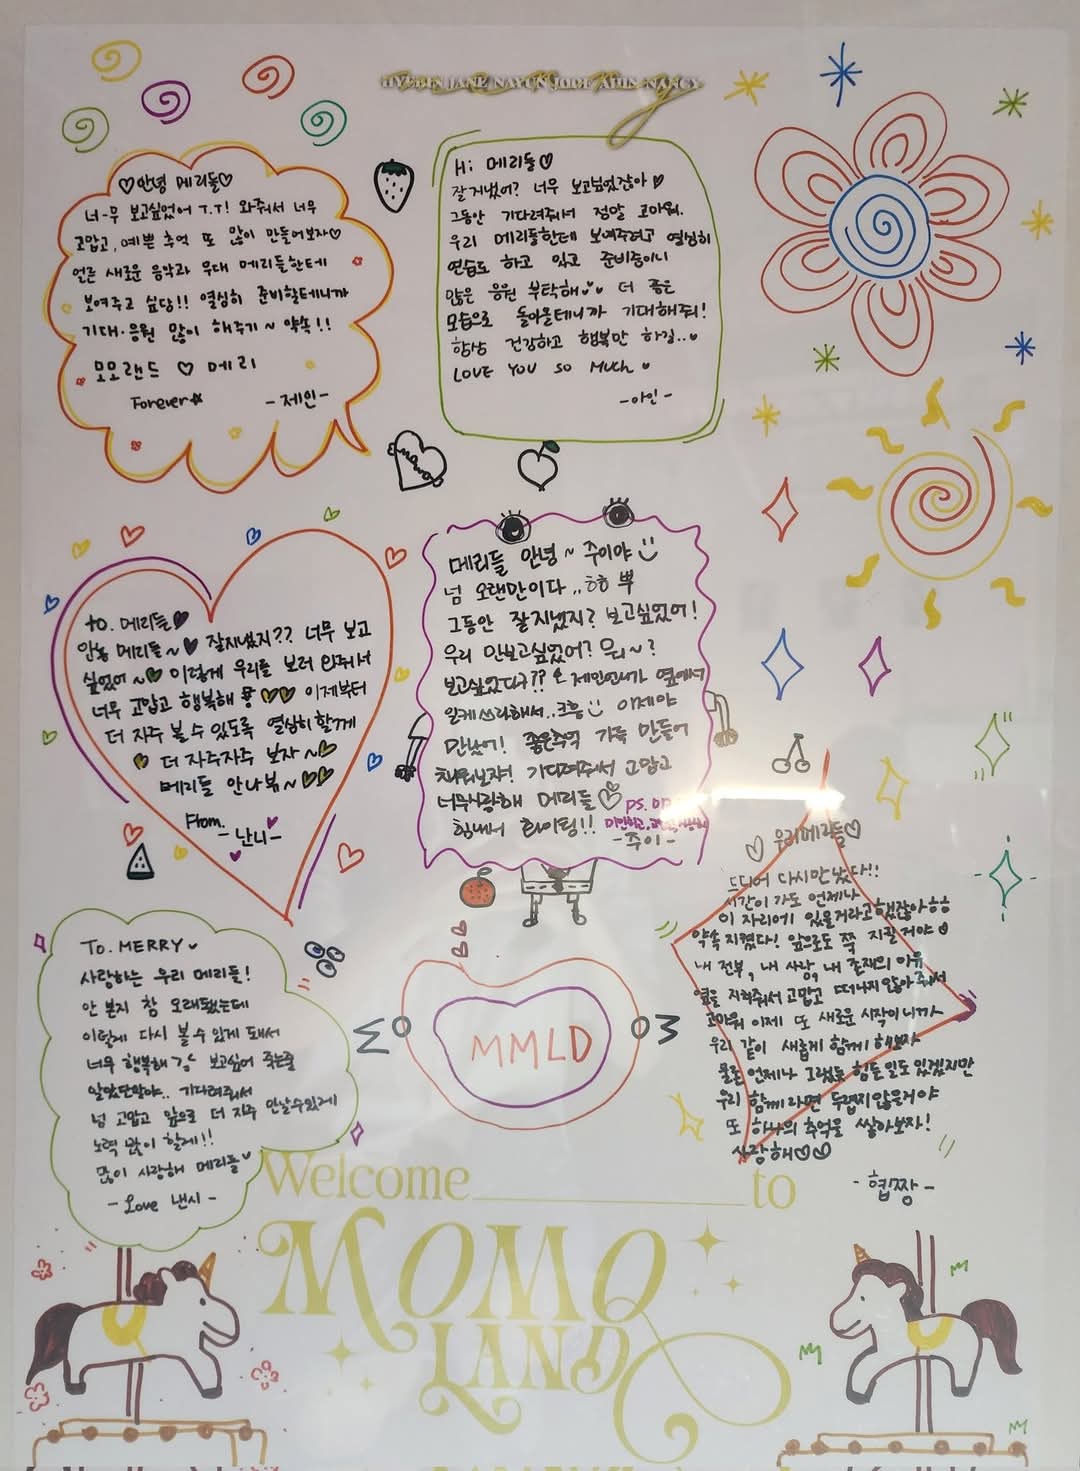 HYEBIN JANE NAYUN JOOE AHIN NANCY
♡안녕 메리들♡
너-무 보고싶었어 T.T! 와줘서 너무
고맙고, 예쁜 추억 또 많이 만들어보자♡
얼른 새로운 음악과 무대 메리들한테
보여주고 싶당!! 열심히 준비할테니까
기대·응원 많이 해주기~ 약속!!
모모랜드 ♡ 메리
Forever☆
-제인-
Hi 메리들♡
잘 지냈어? 너무 보고싶었잖아♥
그동안 기다려줘서 정말 고마워.
우리 메리들한테 보여주려고 열심히
연습도 하고 있고 준비중이니
많은 응원 부탁해 더 좋은
모습으로 돌아올테니까 기대해줘!
항상 건강하고 행복만 하길..
LOVE YOU SO MUCH
-아인-
momo
to. 메리들♥
안농 메리들~♥ 잘지냈지?? 너무 보고
싶었어~♥ 이렇게 우리를 보러 와줘서
너무 고맙고 행복해 ♥♥ 이제부터
더 자주 볼 수 있도록 열심히 할게
♥ 더 자주자주 보자~♥
메리들 안나봄~♥♥
From.
-난니-
메리들 안녕~ 주이야
넘 오랜만이다..ㅎㅎ 뿌
그동안 잘지냈지? 보고싶었어!
우리 안보고싶었어? 뭐~?
보고싶었다구?? 제인언니가 옆에서
일케 쓰라해서..크흥 이제야
만났어! 좋은추억 가득 만들어
채워보쟈! 기다려줘서 고맙고
너무사랑해 메리들♡
ps.
힘내서 화이팅!! 미안하고,
-주이-
♡ 우리메리들♡
드디어 다시만났다!!
시간이 가도 언제나
이 자리에 있을거라고했잖아ㅎㅎ
약속 지켰다! 앞으로도 쭉 지킬거야
내 전부, 내 사랑, 내 존재의 이유
옆을 지켜줘서 고맙고 떠나지 않아줘서
고마워 이제 또 새로운 시작이니까
우리 같이 새롭게 함께 해보자
물론 언제나 그랬듯 힘든일도 있겠지만
우리 함께라면 두렵지않을거야
또 하나의 추억을 쌓아보자!
사랑해♡♡
-협짱-
To. MERRY
사랑하는 우리 메리들!
안 본지 참 오래됐는데
이렇게 다시 볼 수 있게 돼서
너무 행복해 보고싶어 죽는줄
알았단말야.. 기다려줘서
넘 고맙고 앞으로 더 자주 만날수있게
노력 많이 할게!!
많이 사랑해 메리들
-Love 낸시-
MMLD
Welcome to
MOMO
LAND